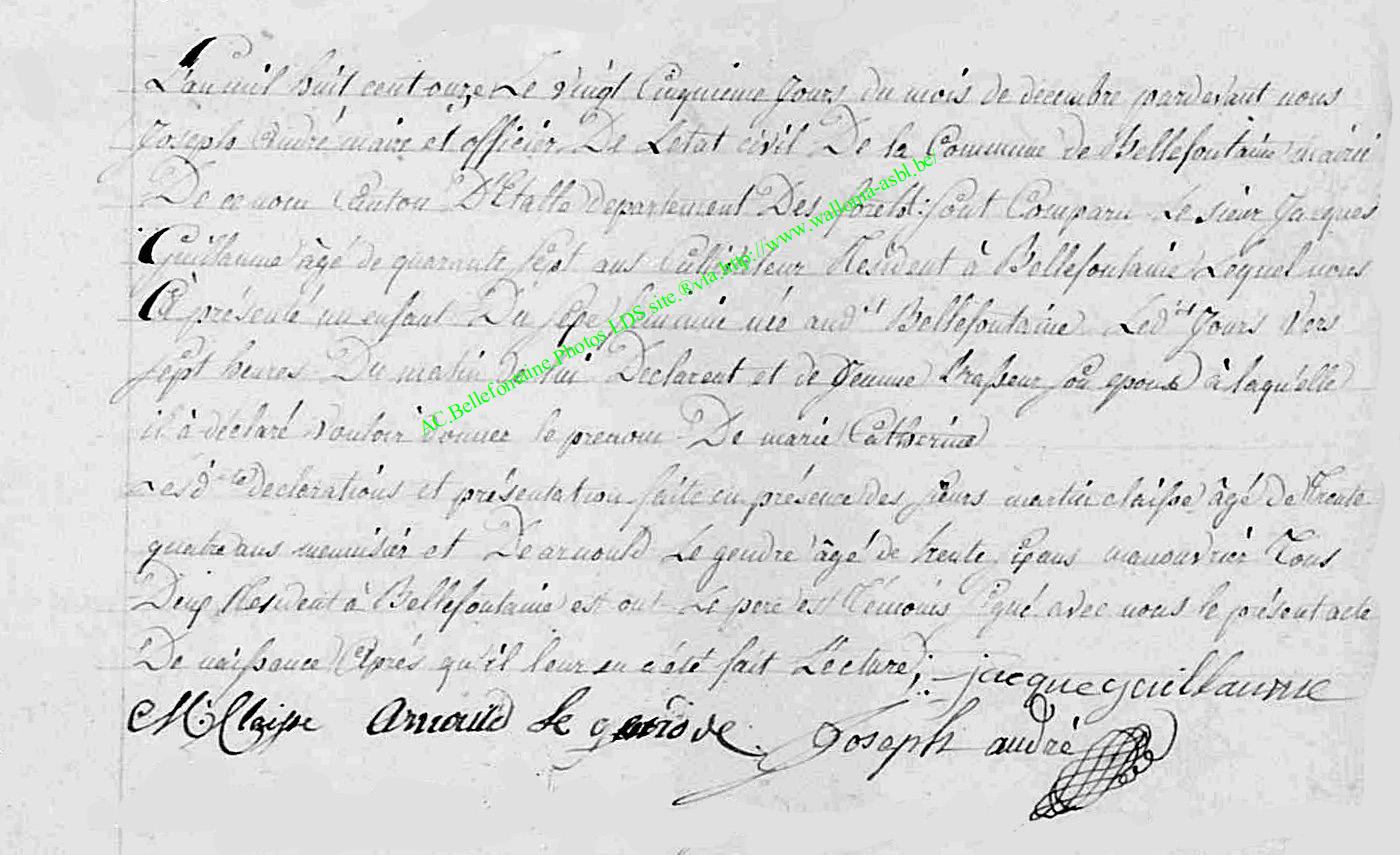 L'an mil huit cent onze Le vingt Cinquieme Jours du mois de decembre pardevant nous
Joseph André maire et officier De Letat civil De la Commune de Bellefontaine mairie
De ce nom Canton D'Etalle departement Des forets: sont Comparu Le sieur Jacques
Guillaume âgé de quarante sept ans Cultivateur Résident à Bellefontaine Lequel nous
à présenté un enfant Du sexe feminin née aud.it Bellefontaine Led.it Jours Vers
sept heures Du matin De lui Declarent et de Jenne son epouse à laquelle
il à déclaré vouloir donner le prenom De marie Catherine
Lesd.tes declarations et présentation faite en présence des sieurs martin claisse âgé De trente
quatre ans menuisier et De arnould Le gendre âgé de trente ans manouvrier Tous
Deux Résident à Bellefontaine est ont Le pere est Témoins signé avec nous le présent acte
De naissance Après qu'il leur en a été fait Lecture;
jacque guillaume
M: Claisse Arnould le gendre Joseph andré
AC.Bellefontaine Photos LDS site.®via.http://www.wallonia-asbl.be/